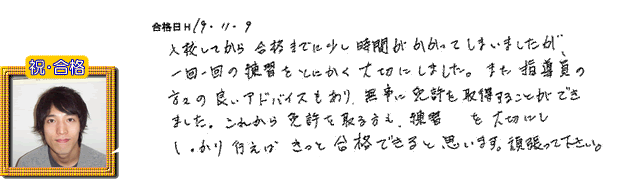 合格日H19.11.9
入校してから合格までに少し時間がかかってしまいましたが、
一回一回の練習をとにかく大切にしました。また指導員の
方々の良いアドバイスもあり、無事に免許を取得することができ
ました。これから免許を取る方も、練習 を大切にし
しっかり行えばきっと合格できると思います。頑張って下さい。
祝・合格